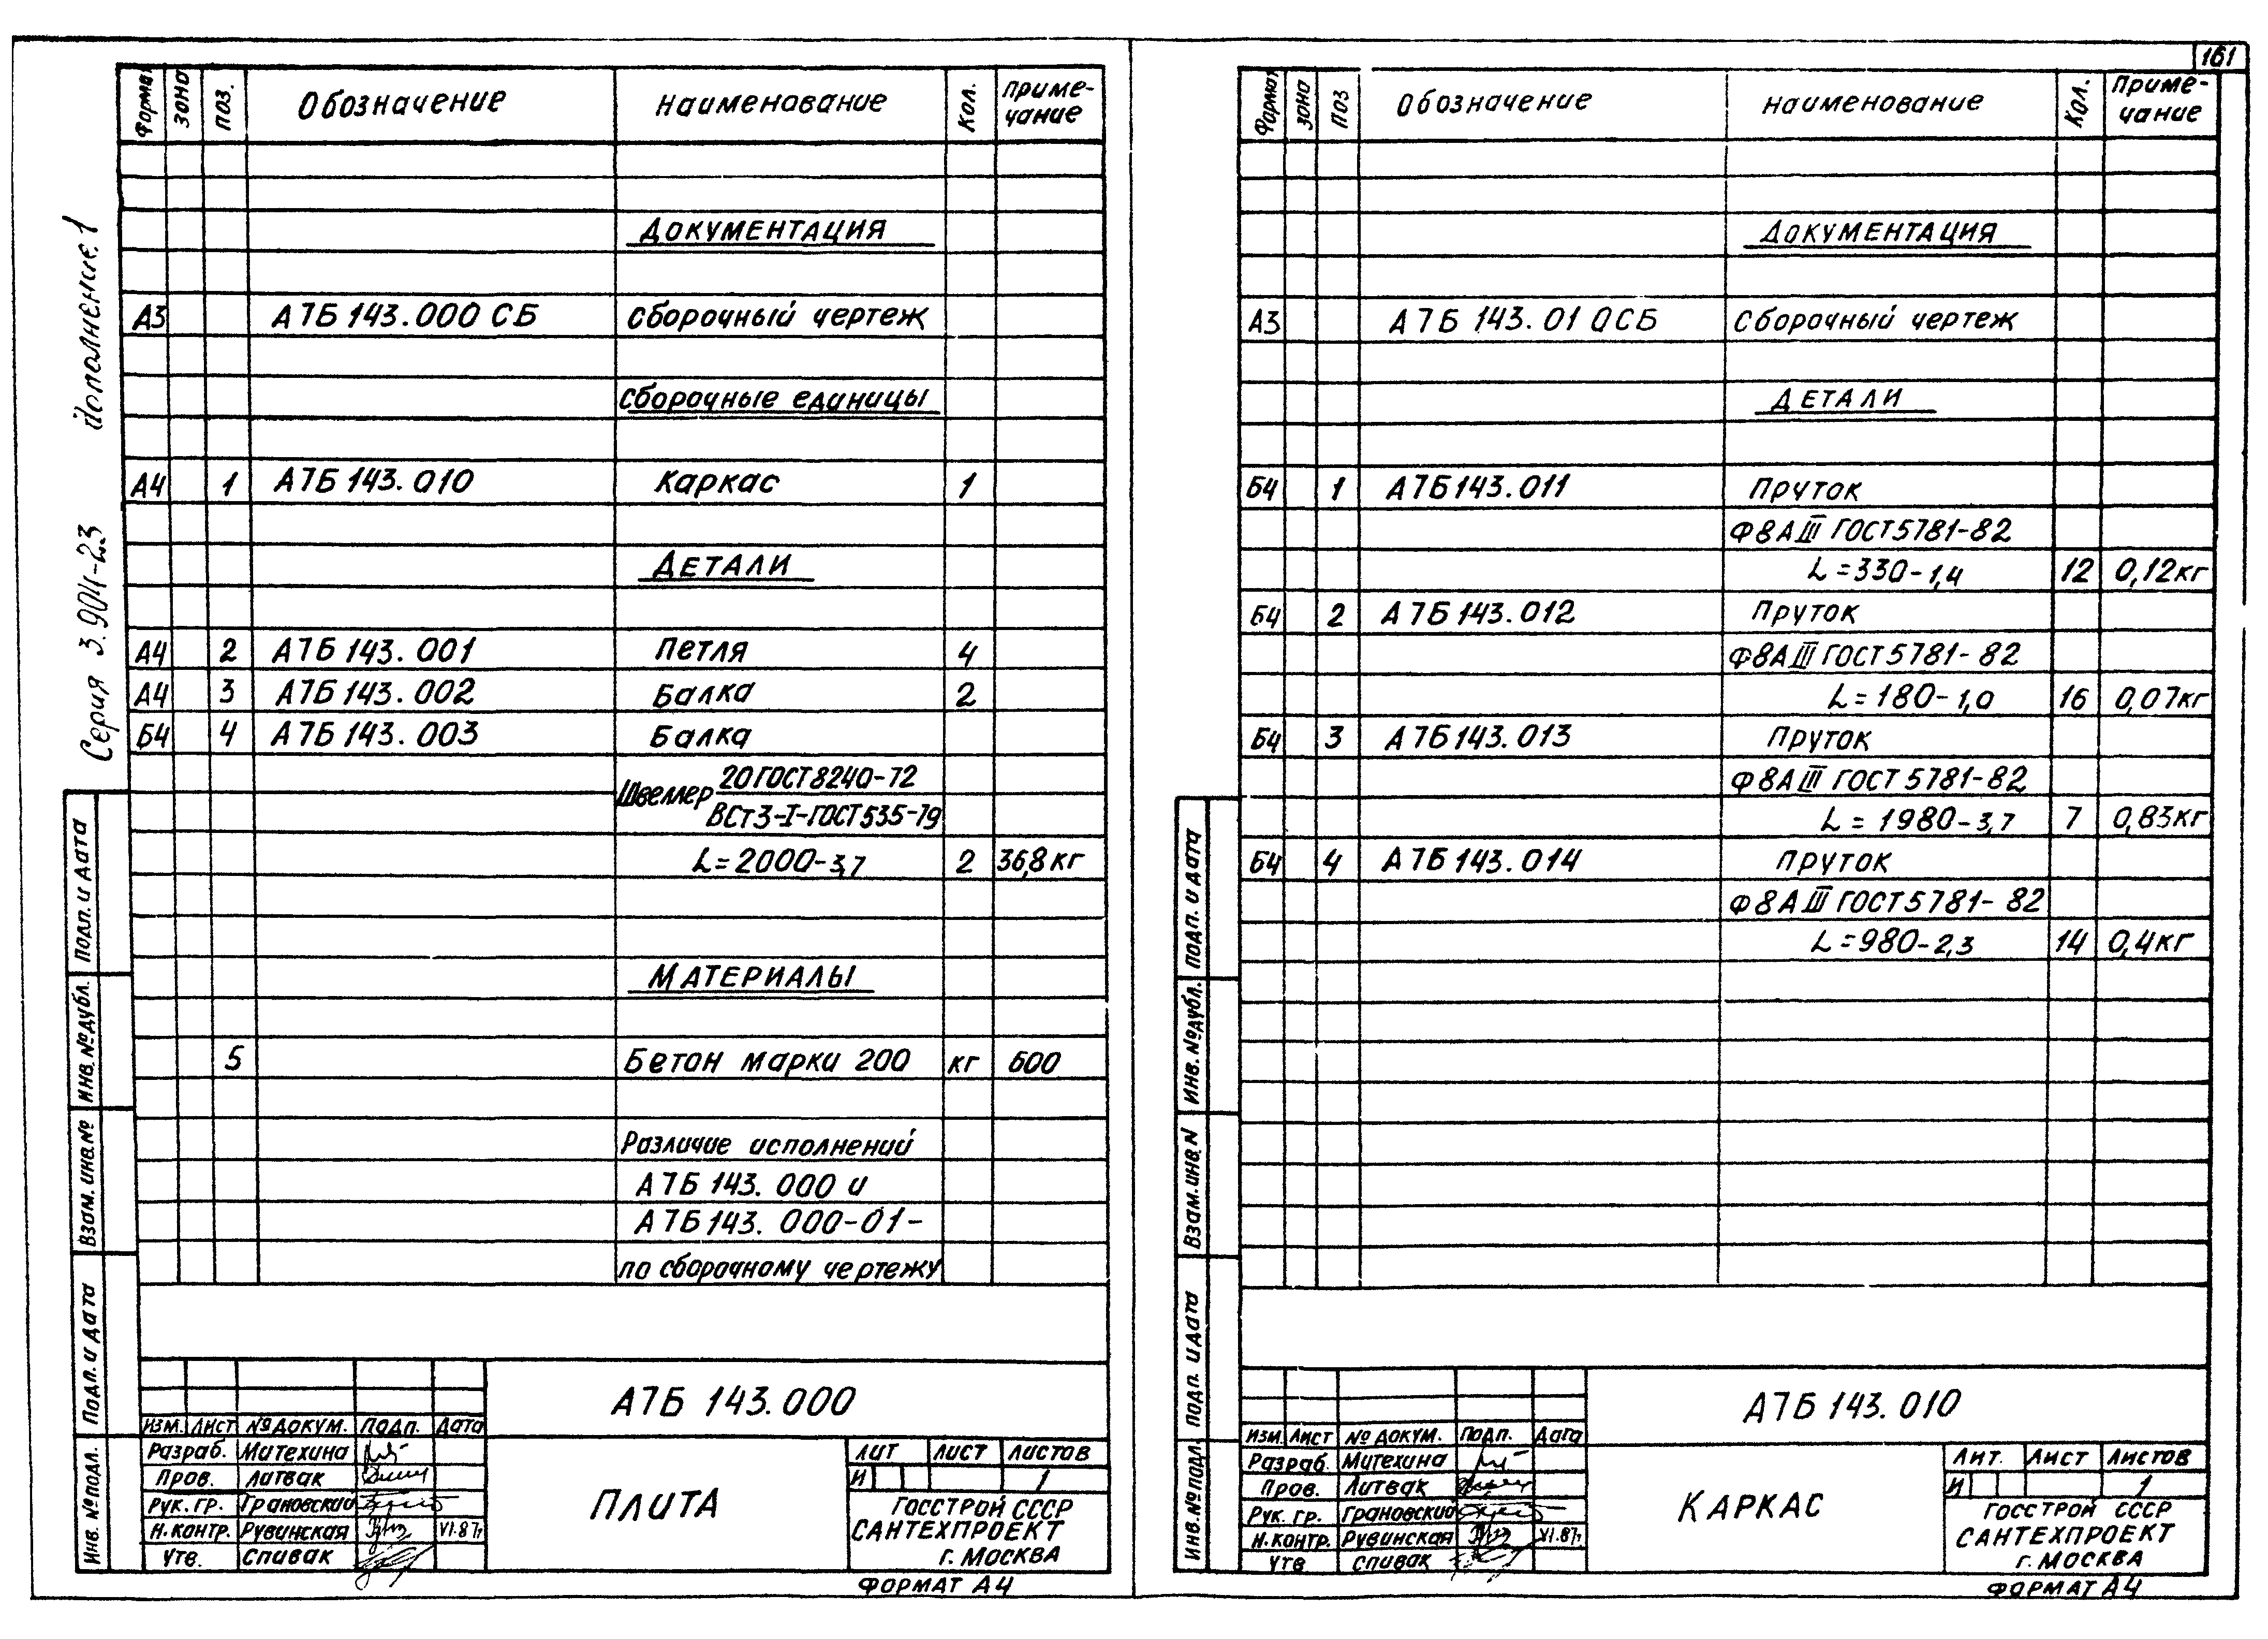 161
Серия 3.904-23 Дополнение 1
Формат Зона Поз. Обозначение Наименование Кол. Примечание
Документация
А3 А7Б 143.000 СБ Сборочный чертеж
Сборочные единицы
А4 1 А7Б 143.010 Каркас 1
Детали
А4 2 А7Б 143.001 Петля 4
А4 3 А7Б 143.002 Балка 2
Б4 4 А7Б 143.003 Балка
Швеллер 20 ГОСТ 8240-72
ВСт3-I-ГОСТ 535-79
L=2000-3,7 2 36,8 кг
Материалы
5 Бетон марки 200 кг 600
Различие исполнений
А7Б 143.000 и
А7Б 143.000-01-
по сборочному чертежу
Подп. и дата
Инв. № дубл.
Взам. инв. №
Подп. и дата
Инв. № подл.
А7Б 143.000
Изм. Лист № докум. Подп. Дата
Разраб. Митехина
Пров. Литвак
Рук. гр. Грановский
Н. контр. Рувинская VI.87г
Утв. Спивак
ПЛИТА
Лит Лист Листов
И 1
ГОССТРОЙ СССР
САНТЕХПРОЕКТ
г. МОСКВА
ФОРМАТ А4
Формат Зона Поз Обозначение Наименование Кол. Примечание
Документация
А3 А7Б 143.010СБ Сборочный чертеж
Детали
Б4 1 А7Б 143.011 Пруток
Ф8АIII ГОСТ 5781-82
L=330-1,4 12 0,12 кг
Б4 2 А7Б 143.012 Пруток
Ф8АIII ГОСТ 5781-82
L=180-1,0 16 0,07 кг
Б4 3 А7Б 143.013 Пруток
Ф8АIII ГОСТ 5781-82
L=1980-3,7 7 0,83 кг
Б4 4 А7Б 143.014 Пруток
Ф8АIII ГОСТ 5781-82
L=980-2,3 14 0,4 кг
Подп. и дата
Инв. № дубл.
Взам. инв. N
Подп. и дата
Инв. № подл.
А7Б 143.010
Изм. Лист № докум. Подп. Дата
Разраб. Митехина
Пров. Литвак
Рук. гр. Грановский
Н. контр. Рувинская VI.87г
Утв Спивак
КАРКАС
Лит. Лист Листов
И 1
ГОССТРОЙ СССР
САНТЕХПРОЕКТ
г. МОСКВА
ФОРМАТ А4